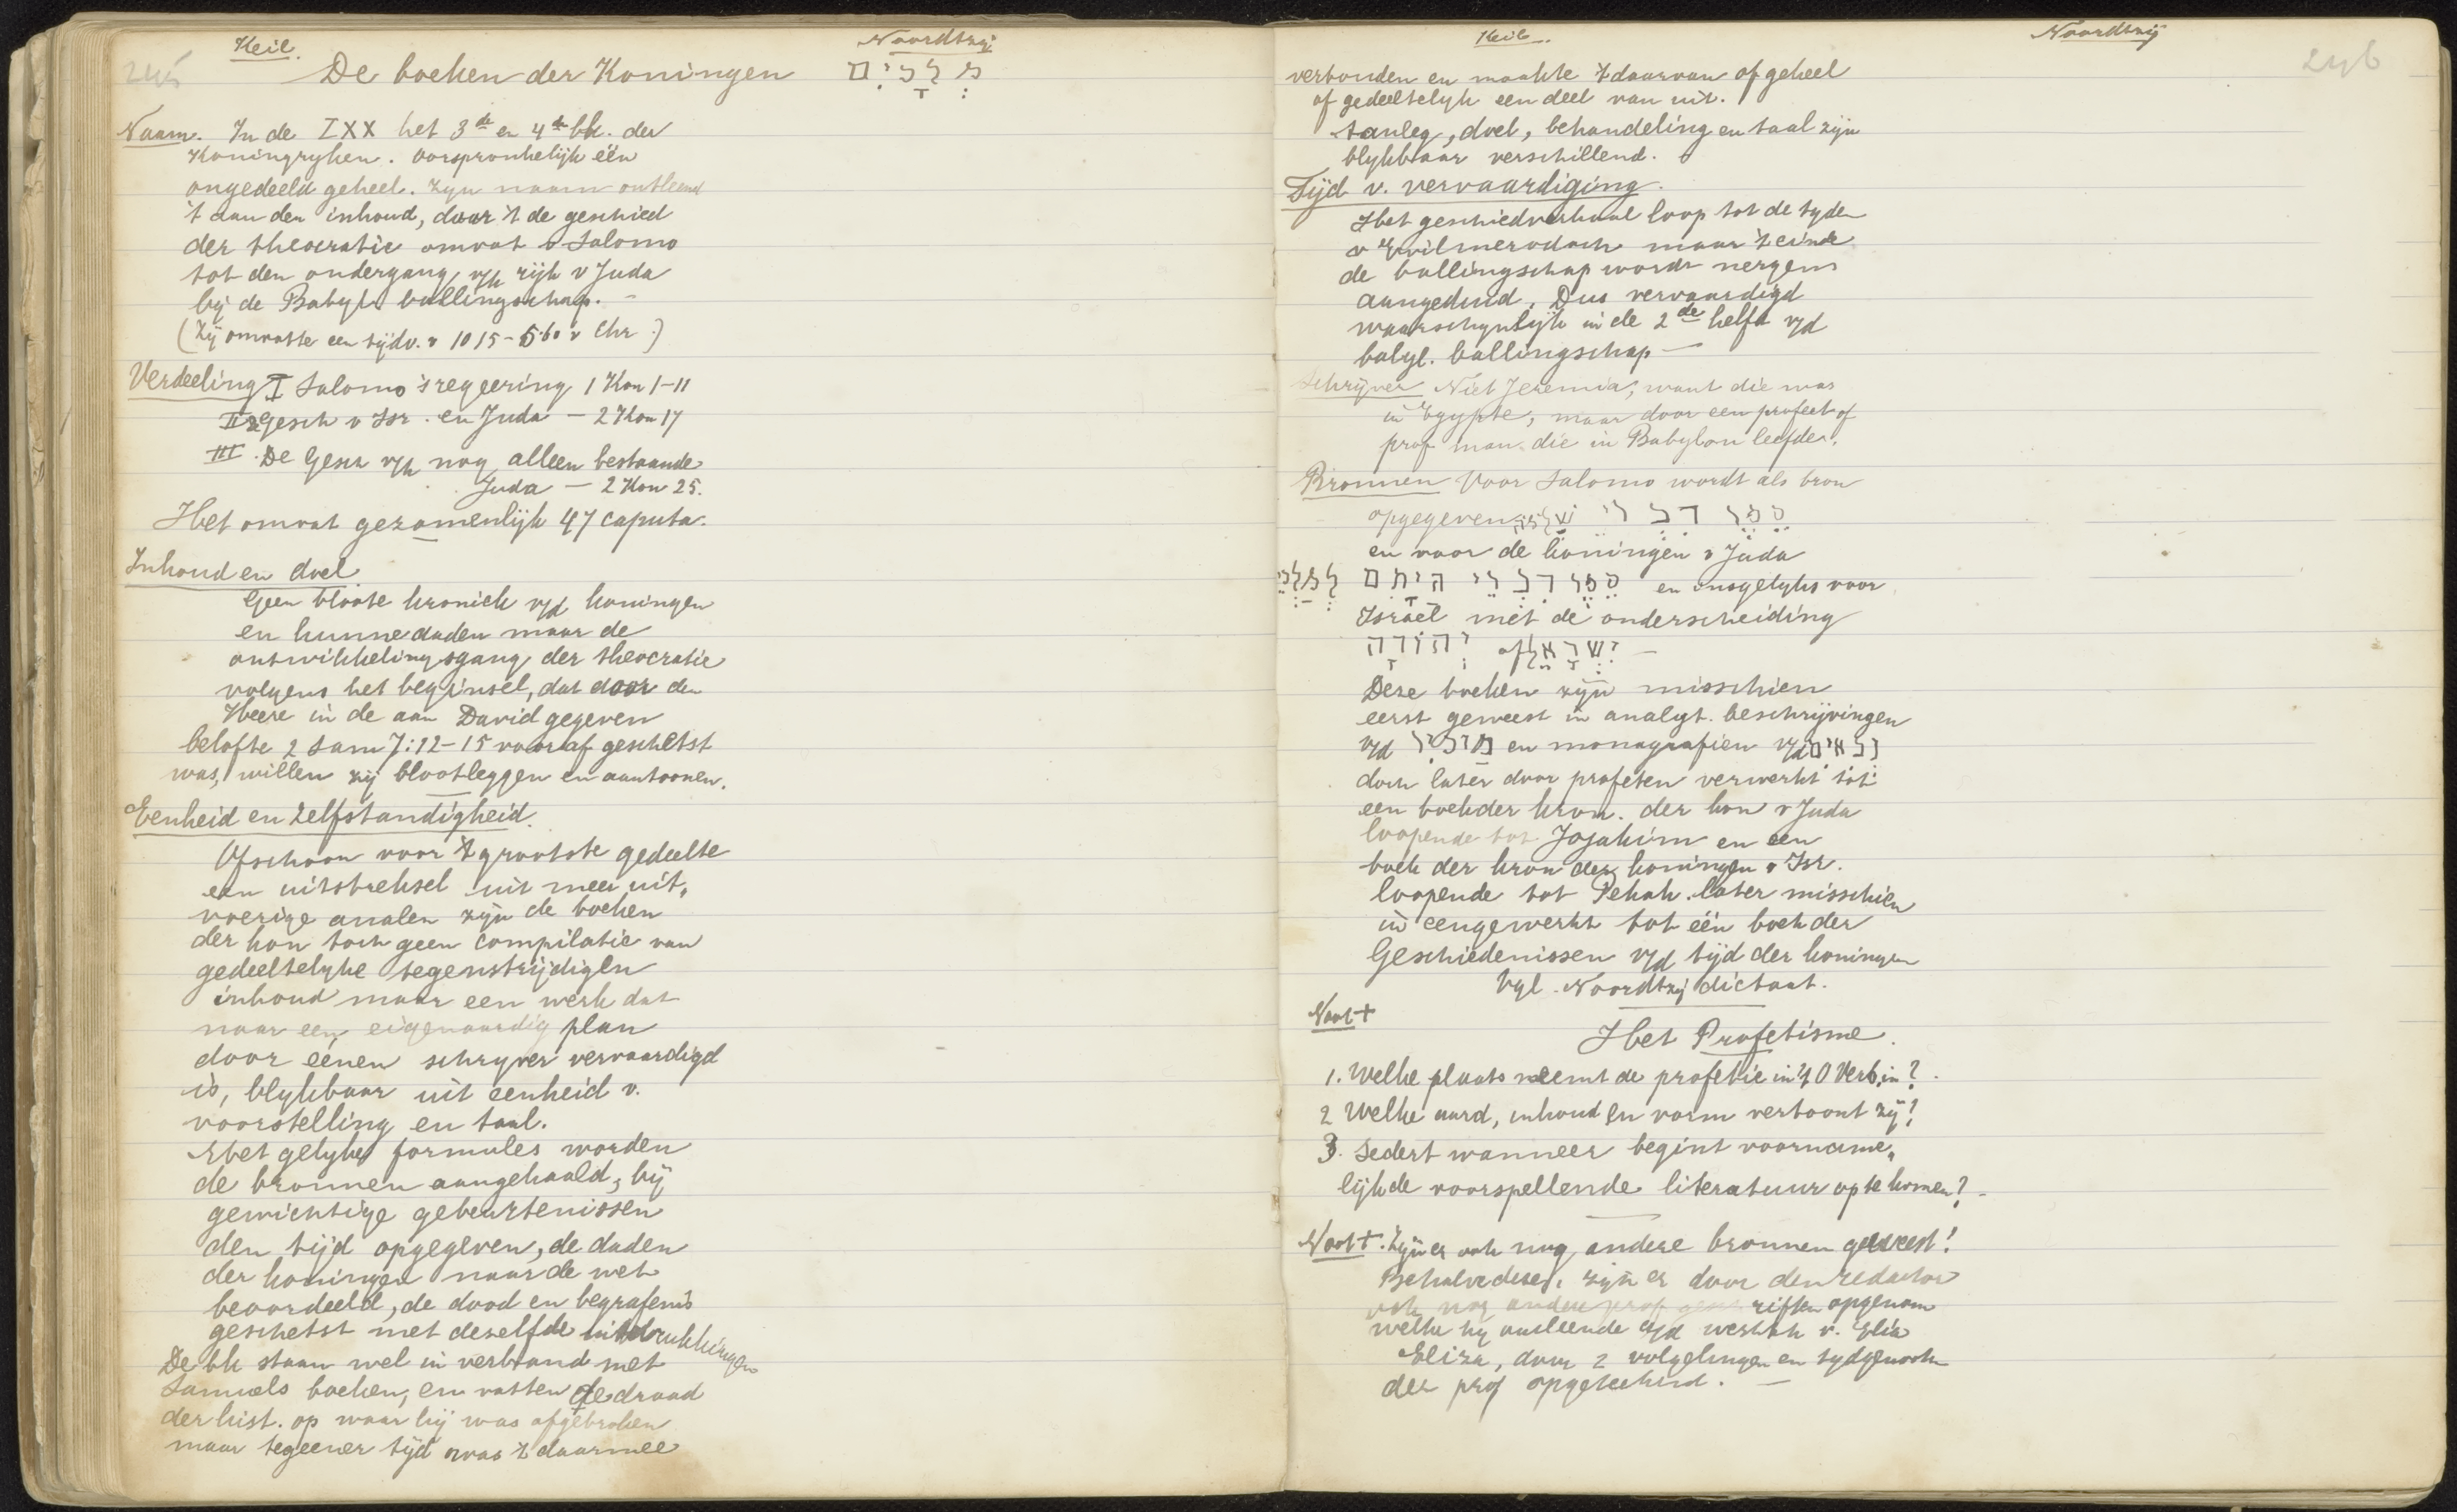 Keil. Noordtzij
245 De boeken der Koningen מְלָכִים
Naam. In de LXX het 3de en 4de bk. der
Koningryken. Oorspronkelijk één
ongedeeld geheel. Zijn naam ontleend
't aan den inhoud, daar 't de geschied
der theocratie omvat v Salomo
tot den ondergang v/h rijk v Juda
bij de Babyl. ballingschap. –
(Zij omvatte een tijdv. v 1015-560 v Chr.)
Verdeeling I Salomo's regeering 1 Kon 1-11
II Gesch v Isr. en Juda — 2 Kon 17
III. De Gesch v/h nog alleen bestaande
Juda — 2 Kon 25.
Het omvat gezamenlijk 47 caputa.
Inhoud en doel
Geen bloote kroniek v/d koningen
en hunne daden maar de
ontwikkelingsgang der theocratie
volgens het beginsel, dat door den
Heere in de aan David gegeven
belofte 2 Sam 7:12-15 vooraf geschetst
was, willen zij blootleggen en aantoonen.
Eenheid en Zelfstandigheid.
Ofschoon voor 't grootste gedeelte
een uitstreksel uit meer uit„
voerige analen zijn de boeken
der kon toch geen compilatie van
gedeeltelyke tegenstrijdigen
inhoud maar een werk dat
naar een eigenaardig plan
door éénen schryver vervaardigd
is, blykbaar uit eenheid v.
voorstelling en taal.
Met gelyke formules worden
de bronnen aangehaald, bij
gewichtige gebeurtenissen
den tijd opgegeven, de daden
der koningen naar de wet
beoordeeld, de dood en begrafenis
geschetst met dezelfde uitdrukkingen
De bk staan wel in verband met
Samuels boeken, en vatten de draad
der hist. op waar hij was afgebroken
maar tegeener tijd was 't daarmee
Keil. Noordtzij
246
verbonden en maakte 't daarvan of geheel
of gedeeltelyk een deel van uit.
Aanleg, doel, behandeling en taal zijn
blykbaar verschillend.
Tijd v. vervaardiging.
Het geschiedverhaal loop tot de tyden
v Evilmerodach maar 't einde
de ballingschap wordt nergens
aangeduid. Dus vervaardigd
waarschynlyk in de 2de helft v/d
babyl. ballingschap —
Schrijver Niet Jeremia, want die was
in Egypte, maar door een profeet of
prof man die in Babylon leefde.
Bronnen Voor Salomo wordt als bron
opgegeven סֵפֶר דִבְרֵי שְׁלֹמֹה
en voor de koningen v Juda
סֵפֶר דִבְרֵי הַיָמִם לְמַלְכֵי en insgelyks voor
Israël met de onderscheiding
יִשְׂרָאֵל of יְהוּדָה —
Deze boeken zijn misschien
eerst geweest in analyt. beschrijvingen
v/d מזכיר en monografien v/d נביאים
doch later door profeten verwerkt tot
een boek der kron. der kon v Juda
loopende tot Jojakim en een
boek der kron der koningen v Isr.
loopende tot Pekah. later misschien
in eengewerkt tot één boek der
Geschiedenissen v/d tijd der koningen
Vgl. Noordtzij dictaat.
Noot +
Het Profetisme.
1. Welke plaats neemt de profetie in 't O Verb. in?
2 Welke aard, inhoud en vorm vertoont zij?
3. Sedert wanneer begint voorname„
lijk de voorspellende literatuur op te komen? –
Noot +. Zijn er ook nog andere bronnen geweest!
Behalve deze, zijn er door den redactor
ook nog andere prof geschriften opgenom
welke hij ontleende v/d v. Elia
Eliza, door 2 volgelingen en tydgenooten
der prof opgeteekend. —